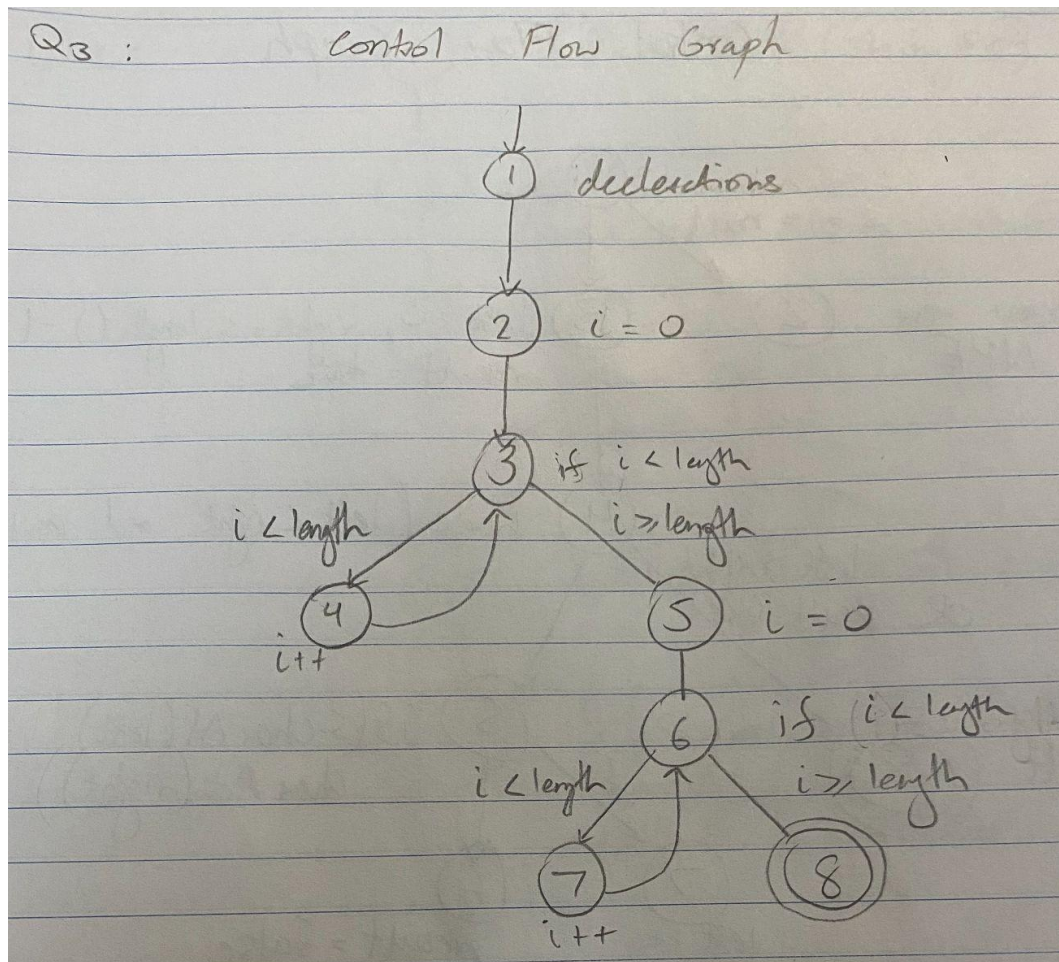 Q3 : Control Flow Graph
1 declerctions
2 i = 0
3 if i < length
i < length i ≥ length
4 5 i = 0
i++
6 if i < length
i < length i ≥ length
7 8
i++